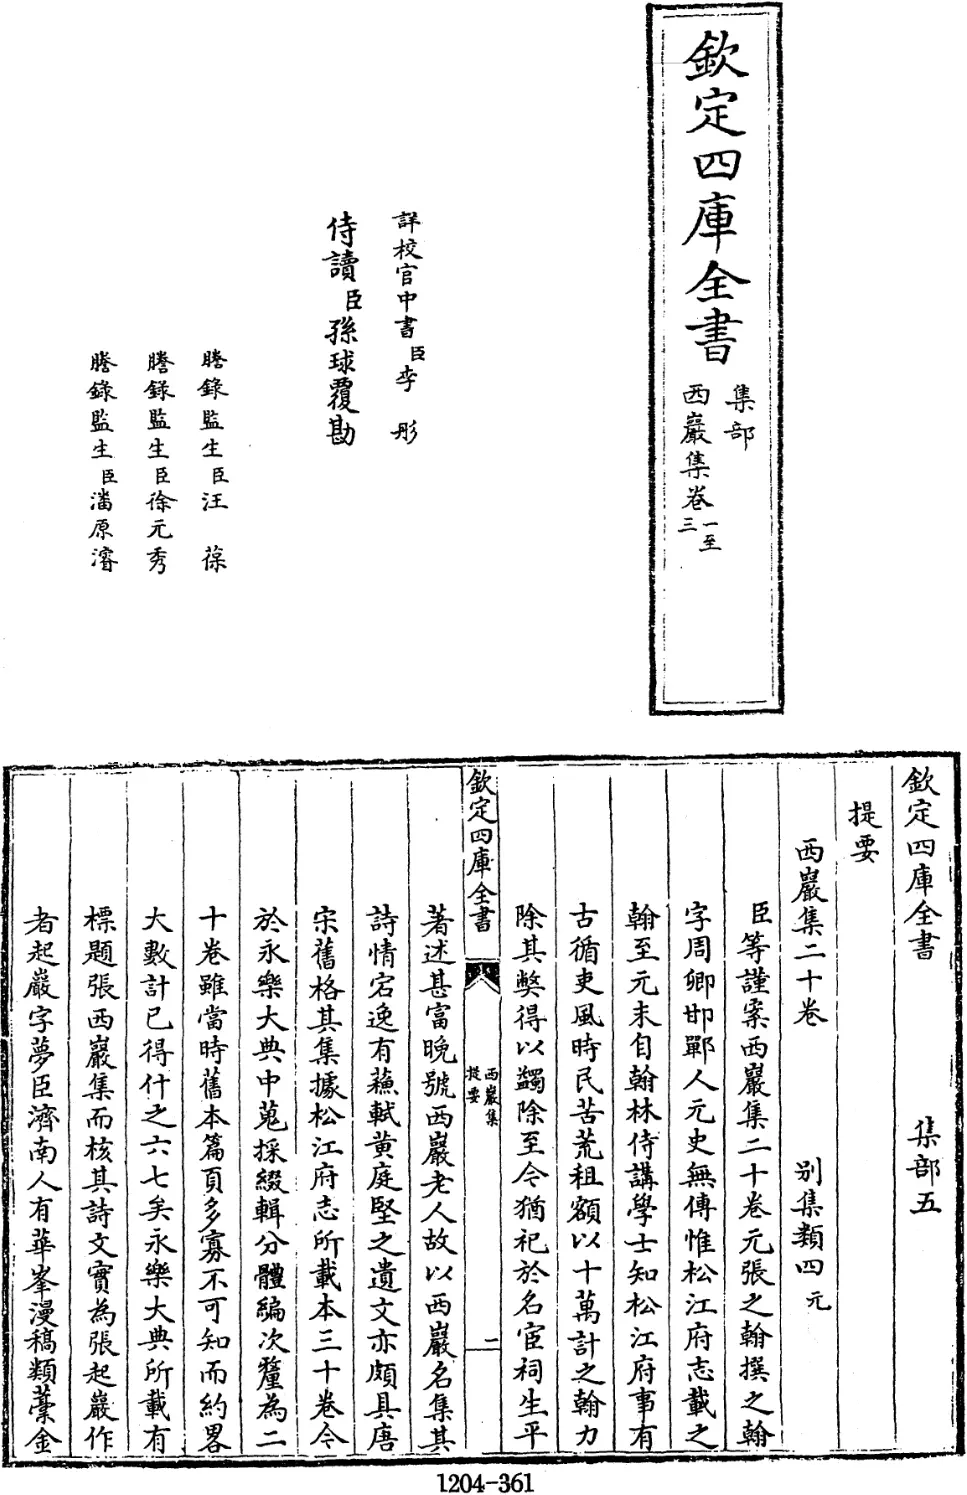 欽定四庫全書
集部
西巖集卷一至三
詳校官中書臣李彤
侍讀臣孫球覆勘
謄錄監生臣汪葆
謄錄監生臣徐元秀
謄錄監生臣潘原濬
欽定四庫全書　集部五
提要
西巖集二十卷　別集類四元
臣等謹案西巖集二十卷元張之翰撰之翰
字周卿邯鄲人元史無傳惟松江府志載之
翰至元末自翰林侍講學士知松江府事有
古循吏風時民苦荒租額以十萬計之翰力
除其弊得以蠲除至今猶祀於名宦祠生平
欽定四庫全書
西巖集
提要
二
著述甚富晚號西巖老人故以西巖名集其
詩情宕逸有蘇軾黃庭堅之遺文亦頗具唐
宋舊格其集據松江府志所載本三十卷今
於永樂大典中蒐採綴輯分體編次釐為二
十卷雖當時舊本篇頁多寡不可知而約畧
大數計已得什之六七矣永樂大典所載有
標題張西巖集而核其詩文實為張起巖作
者起巖字夢臣濟南人有華峯漫稿類藁金
1204-361